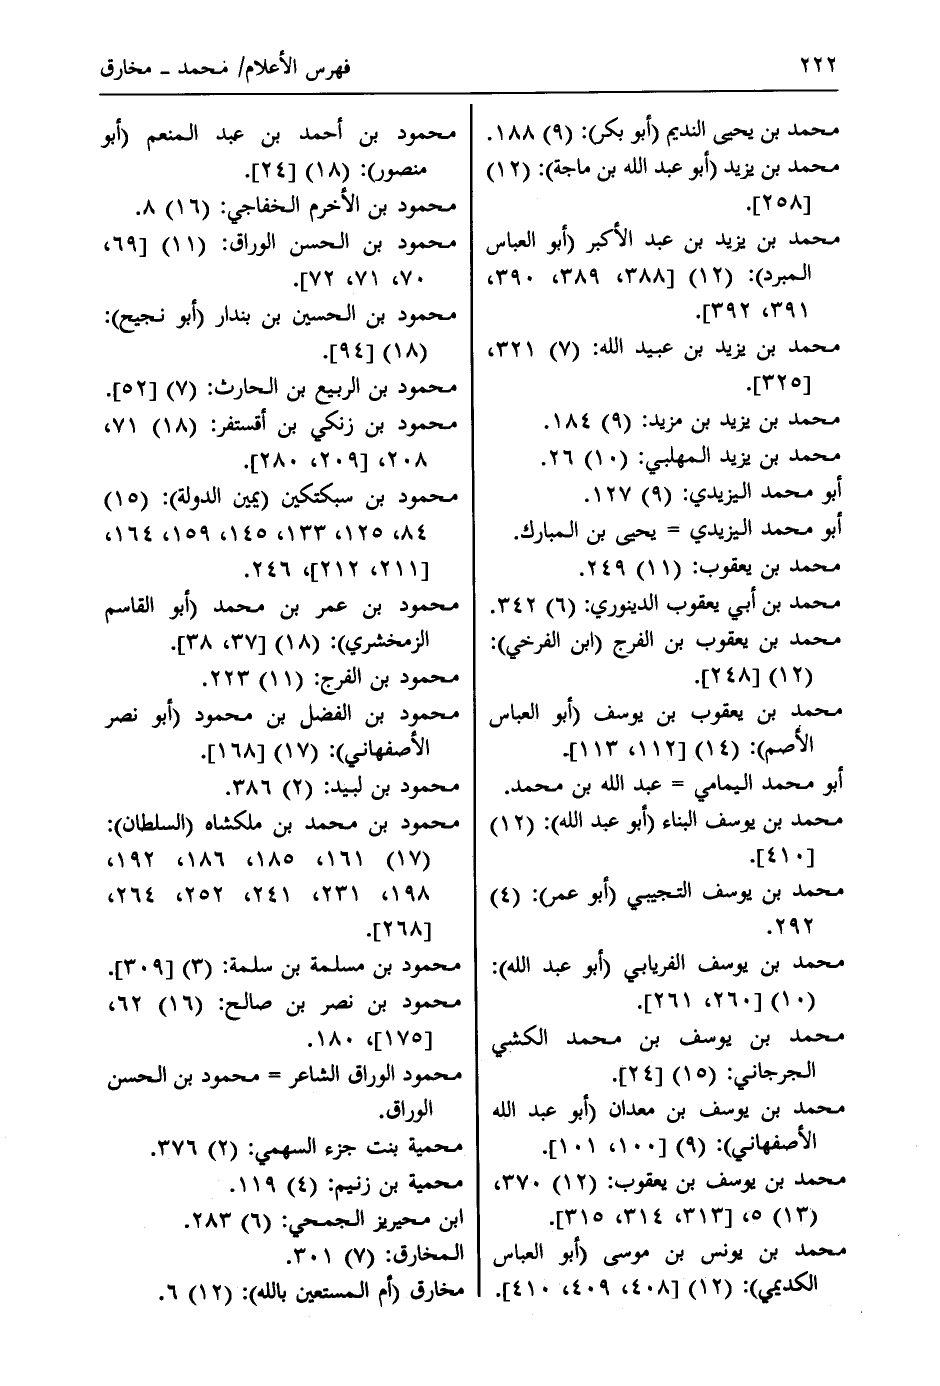 ٢٢٢
فهرس الأعلام/ محمد ـ مخارق
محمد بن يحيى النديم (أبو بكر): (٩) ١٨٨.
محمد بن يزيد (أبو عبد الله بن ماجة): (١٢)
[٢٥٨].
محمد بن يزيد بن عبد الأكبر (أبو العباس
المبرد): (١٢) [٣٨٨، ٣٨٩، ٣٩٠،
٣٩١، ٣٩٢].
محمد بن يزيد بن عبيد الله: (٧) ٣٢١،
[٣٢٥].
محمد بن يزيد بن مزيد: (٩) ١٨٤.
محمد بن يزيد المهلبي: (١٠) ٢٦.
أبو محمد اليزيدي: (٩) ١٢٧.
أبو محمد اليزيدي = يحيى بن المبارك.
محمد بن يعقوب: (١١) ٢٤٩.
محمد بن أبي يعقوب الدينوري: (٦) ٣٤٢.
محمد بن يعقوب بن الفرج (ابن الفرخي):
(١٢) [٢٤٨].
محمد بن يعقوب بن يوسف (أبو العباس
الأصم): (١٤) [١١٢، ١١٣].
أبو محمد اليمامي = عبد الله بن محمد.
محمد بن يوسف البناء (أبو عبد الله): (١٢)
[٤١٠].
محمد بن يوسف التجيبي (أبو عمر): (٤)
٢٩٢.
محمد بن يوسف الفريابي (أبو عبد الله):
(١٠) [٢٦٠، ٢٦١].
محمد بن يوسف بن محمد الكشي
الجرجاني: (١٥) [٢٤].
محمد بن يوسف بن معدان (أبو عبد الله
الأصفهاني): (٩) [١٠٠، ١٠١].
محمد بن يوسف بن يعقوب: (١٢) ٣٧٠،
(١٣) ٥، [٣١٣، ٣١٤، ٣١٥].
محمد بن يونس بن موسى (أبو العباس
الكديمي): (١٢) [٤٠٨، ٤٠٩، ٤١٠].
محمود بن أحمد بن عبد المنعم (أبو
منصور): (١٨) [٢٤].
محمود بن الأخرم الخفاجي: (١٦) ٨.
محمود بن الحسن الوراق: (١١) [٦٩،
٧٠، ٧١، ٧٢].
محمود بن الحسين بن بندار (أبو نجيح):
(١٨) [٩٤].
محمود بن الربيع بن الحارث: (٧) [٥٢].
محمود بن زنكي بن أقستفر: (١٨) ٧١،
٢٠٨، [٢٠٩، ٢٨٠].
محمود بن سبكتكين (يمين الدولة): (١٥)
٨٤، ١٢٥، ١٣٣، ١٤٥، ١٥٩، ١٦٤،
[٢١١، ٢١٢]، ٢٤٦.
محمود بن عمر بن محمد (أبو القاسم
الزمخشري): (١٨) [٣٧، ٣٨].
محمود بن الفرج: (١١) ٢٢٣.
محمود بن الفضل بن محمود (أبو نصر
الأصفهاني): (١٧) [١٦٨].
محمود بن لبيد: (٢) ٣٨٦.
محمود بن محمد بن ملكشاه (السلطان):
(١٧) ١٦١، ١٨٥، ١٨٦، ١٩٢،
١٩٨، ٢٣١، ٢٤١، ٢٥٢، ٢٦٤،
[٢٦٨].
محمود بن مسلمة بن سلمة: (٣) [٣٠٩].
محمود بن نصر بن صالح: (١٦) ٦٢،
[١٧٥]، ١٨٠.
محمود الوراق الشاعر = محمود بن الحسن
الوراق.
محمية بنت جزء السهمي: (٢) ٣٧٦.
محمية بن زنيم: (٤) ١١٩.
ابن محيريز الجمحي: (٦) ٢٨٣.
المخارق: (٧) ٣٠١.
مخارق (أم المستعين بالله): (١٢) ٦.